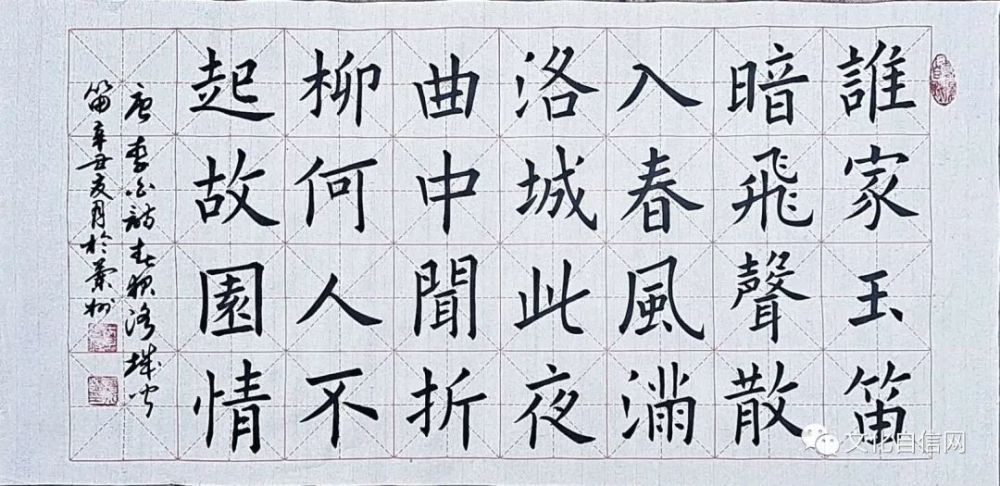 誰家玉笛
暗飛聲散
入春風滿
洛城此夜
曲中聞折
柳何人不
起故園情
唐李白詩春夜洛城聞
笛辛丑亥月於蘭州
文化自信网